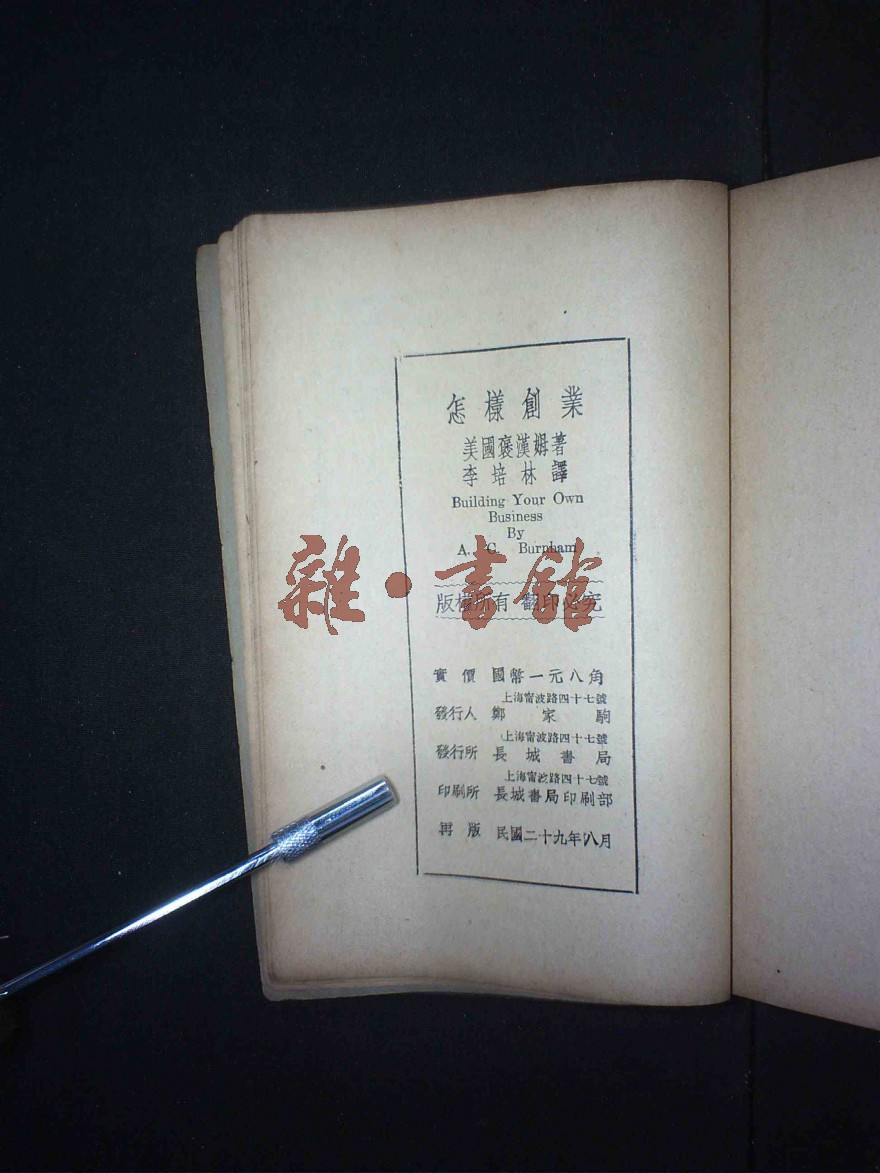 怎樣創業
美國褒漢姆著
李培林譯
Building Your Own
Business
By
A. C. Burnham
雜·書館
版權所有 翻印必究
實價 國幣一元八角
上海甯波路四十七號
發行人 鄭家駒
上海甯波路四十七號
發行所 長城書局
上海甯波路四十七號
印刷所 長城書局印刷部
再版 民國二十九年八月